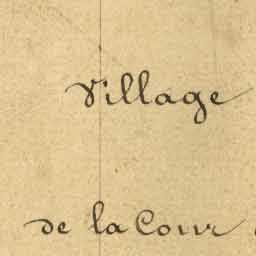 Village
de la Cour